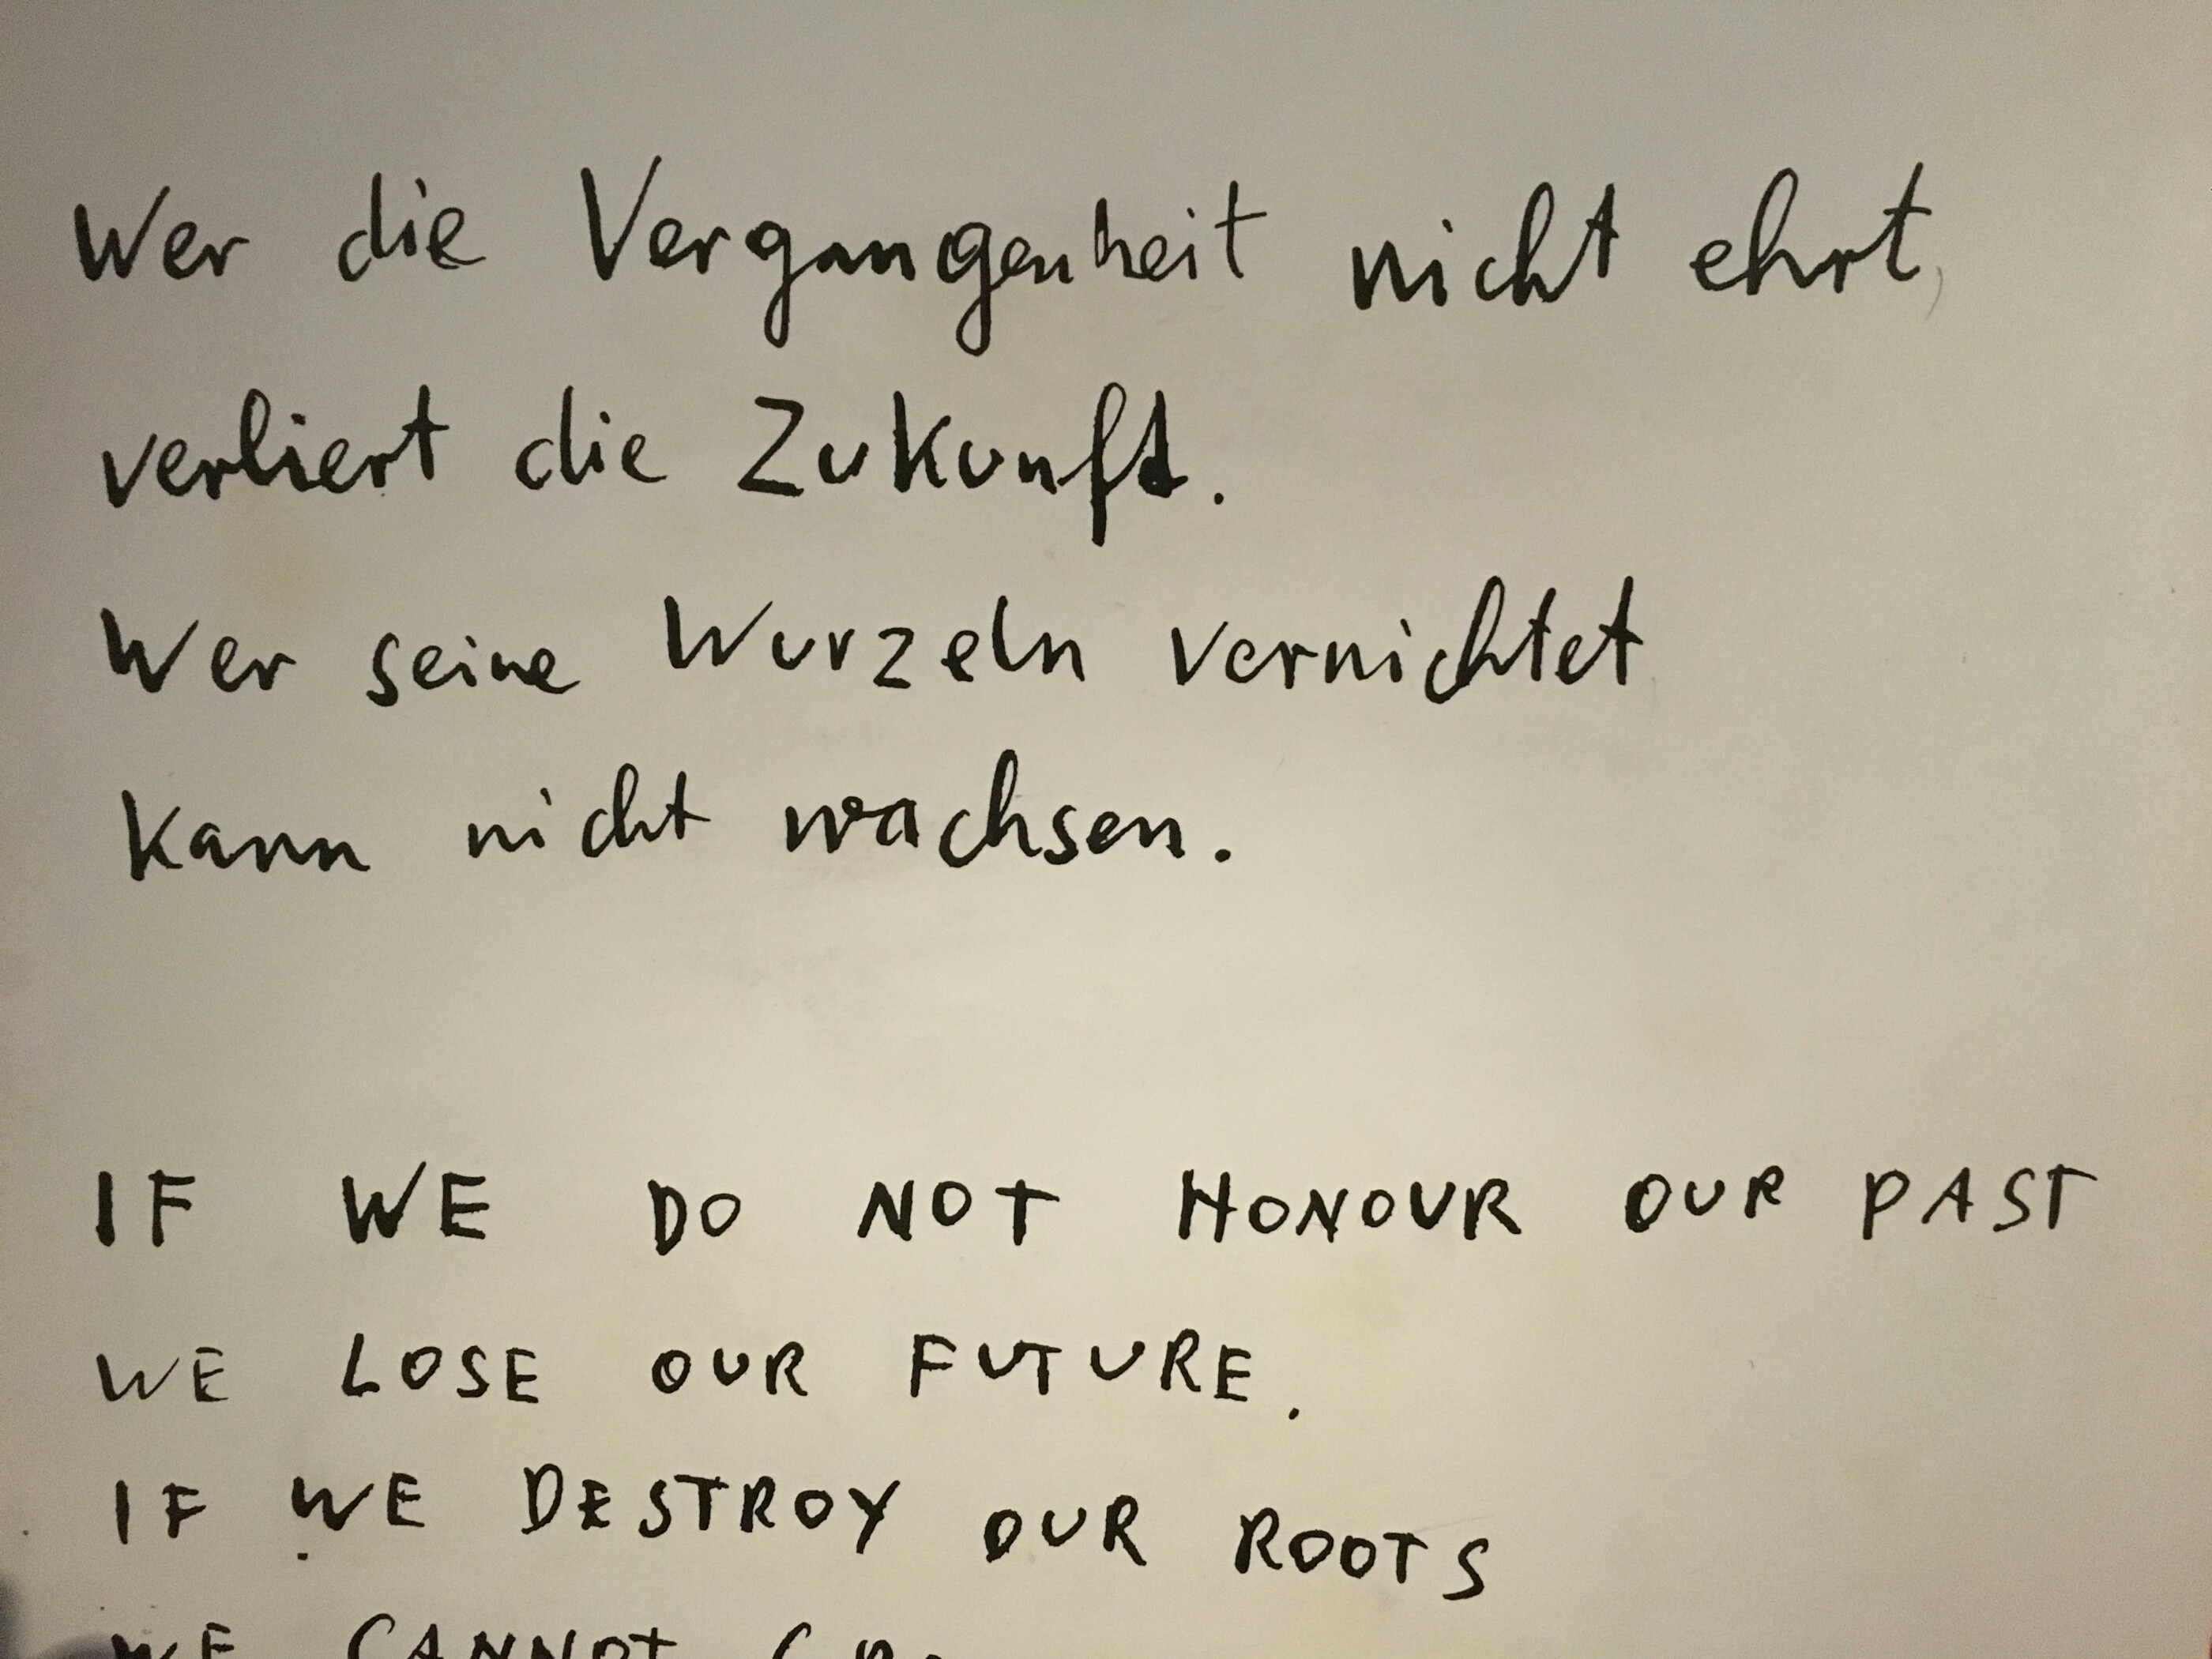 Wer die Vergangenheit nicht ehrt,
verliert die Zukunft.
Wer seine Wurzeln vernichtet
kann nicht wachsen.
IF WE DO NOT HONOUR OUR PAST
WE LOSE OUR FUTURE.
IF WE DESTROY OUR ROOTS
WE CANNOT